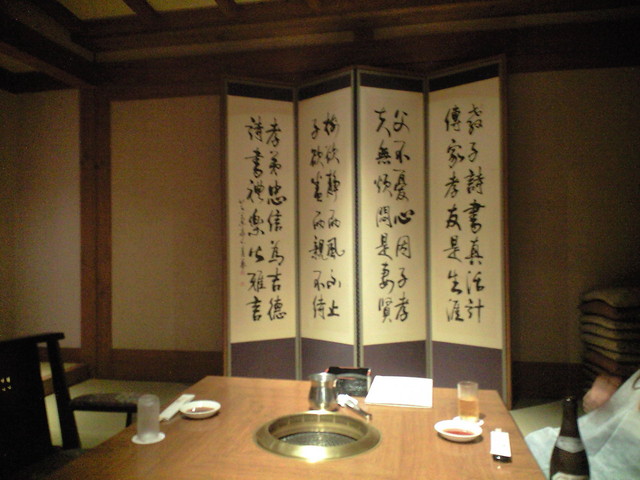 教子詩書真活計
傳家孝友是生涯
父不憂心因子孝
夫無煩悶是妻賢
樹欲靜而風不止
子欲養而親不待
孝弟忠信為吉德
詩書禮樂公雅言